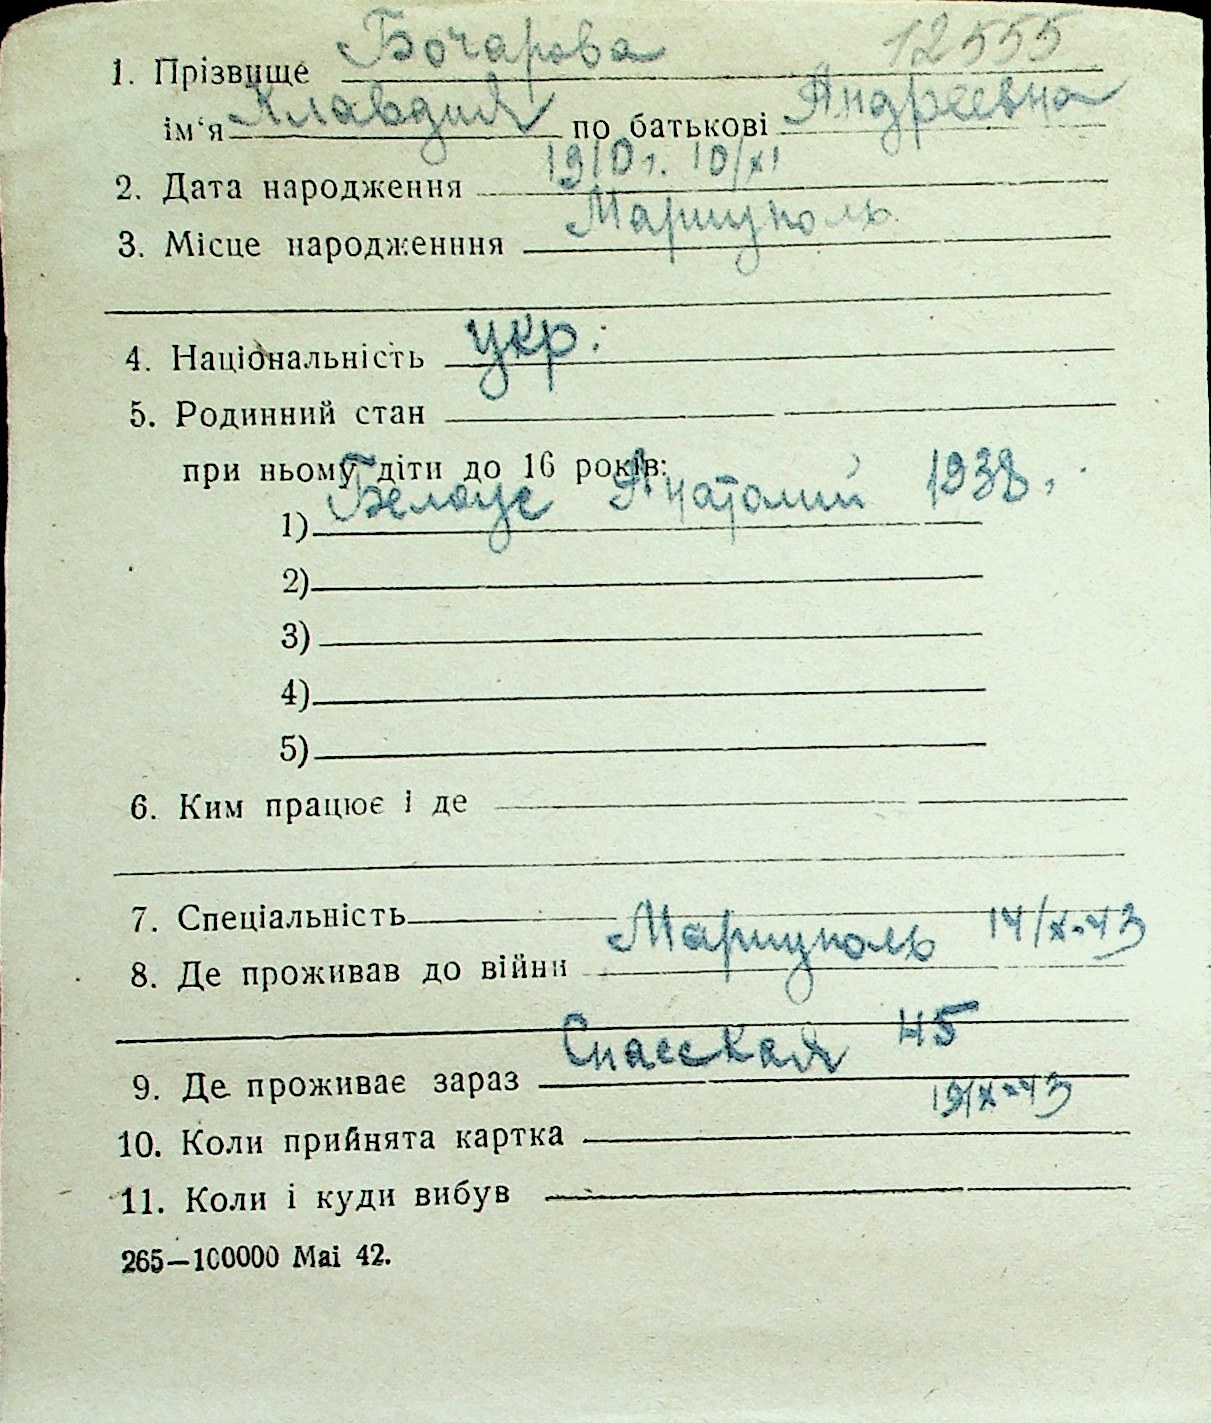 Бочарова 12555
1. Прізвище
ім‘я Клавдия по батькові Андреевна
1910 г. 10/XI
2. Дата народження
Мариуполь
3. Місце народженння
4. Національність укр.
5. Родинний стан
при ньому діти до 16 років:
1) Белоус Анатолий 1938,
2)
3)
4)
5)
6. Ким працює і де
7. Спеціальність
Мариуполь 14/X-43
8. Де проживав до війни
Спасская 45
9. Де проживає зараз
19/X-43
10. Коли прийнята картка
11. Коли і куди вибув
265—100000 Mai 42.